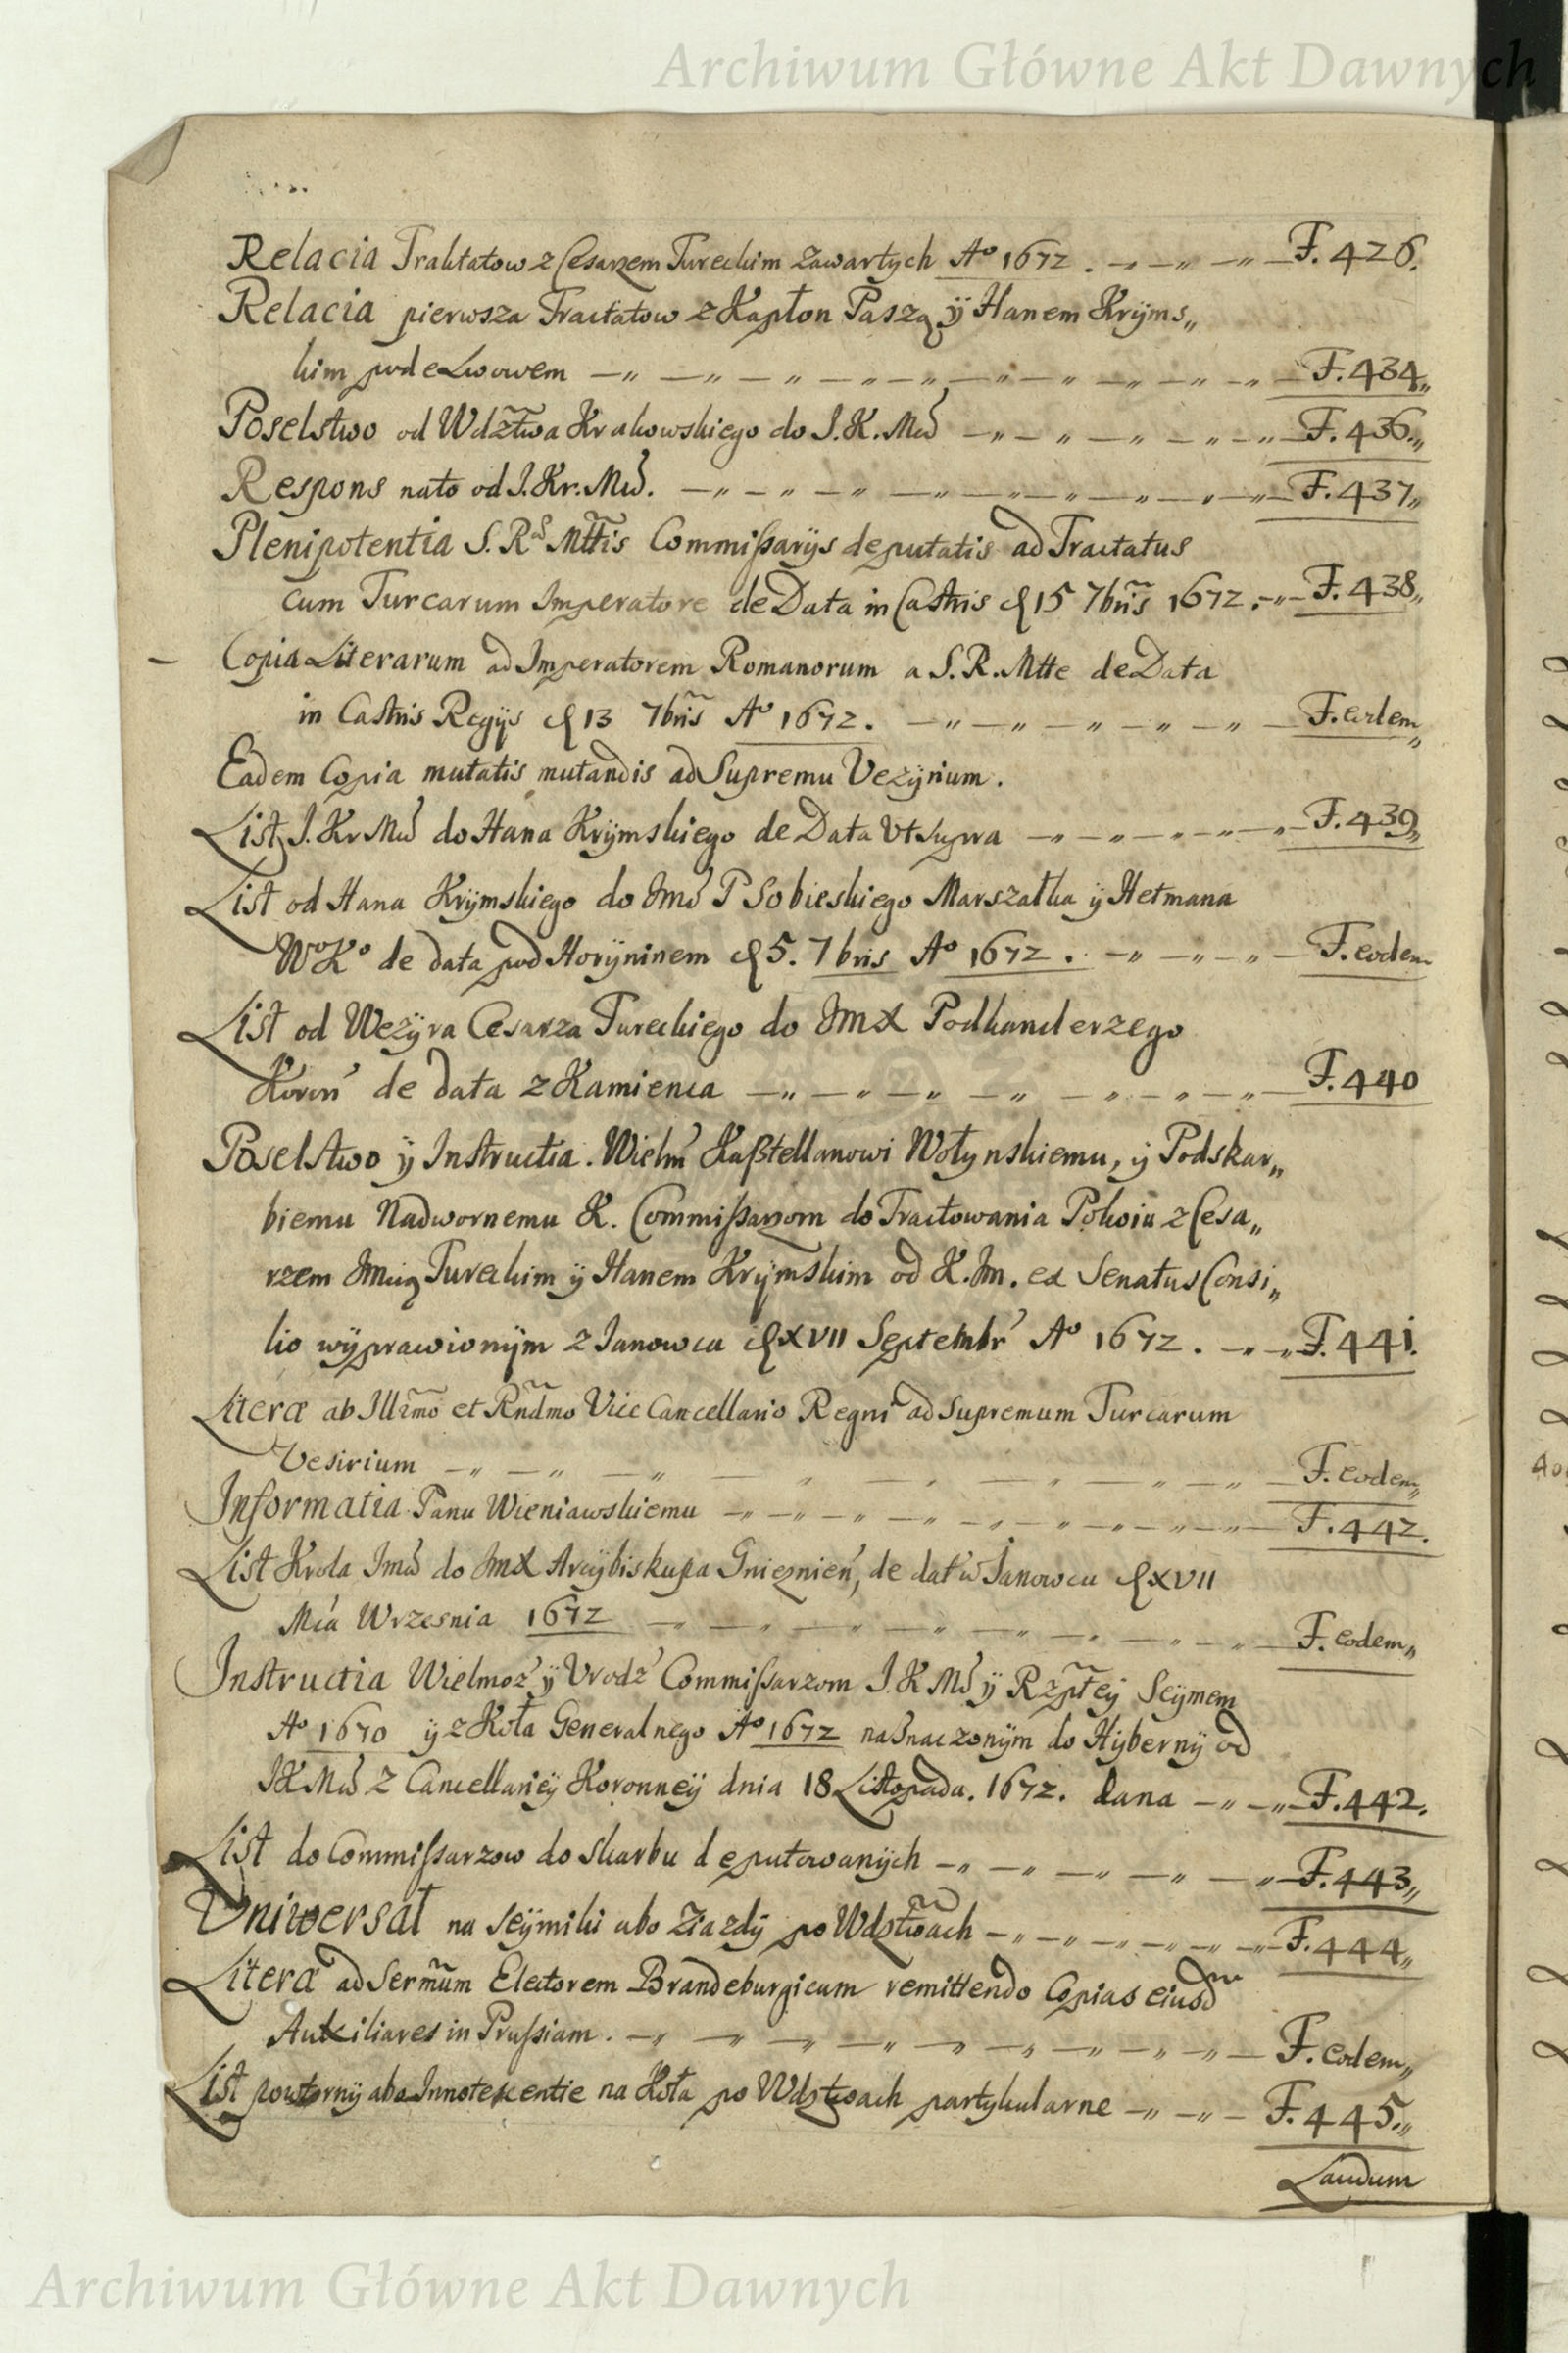 Archiwum Główne Akt Dawnych
Relacia Traktatow z Cesarzem Tureckim zawartych Aº 1672. F. 426.
Relacia pierwsza Tractatow z Kapłon Paszą ÿ Hanem Krÿms„
kim pode Lwowem F. 434„
Poselstwo od Wdztwa Krakowskiego do J. K. Mći F. 436„
Respons nato od J. Kr. Mći. F. 437„
Plenipotentia S. Rᵃᵉ Mttis Commißarÿs deputatis ad Tractatus
cum Turcarum Imperatore de Data in Castris d 15 7bris 1672. F. 438„
Copia Literarum ad Imperatorem Romanorum a S. R. Mtte de Data
in Castris Regÿs d 13 7bris Aº 1672. F. eodem„
Eadem Copia mutatis mutandis ad Supremu Vezÿrium.
List J. Kr Mći do Hana Krÿmskiego de Data Vt supra F. 439„
List od Hana Krÿmskiego do Jmć P Sobieskiego Marszałka ÿ Hetmana
WºKº de data pod Horÿninem d 5. 7bris Aº 1672. F. eodem
List od Wezÿra Cesarza Tureckiego do JmX Podkanclerzego
Koroń de data z Kamienca F. 440
Poselstwo ÿ Instructia. Wielm Kaßtellanowi Wołynskiemu, ÿ Podskar„
biemu Nadwornemu K. Commißarzom do Tractowania Pokoiu z Cesa„
rzem Tureckim ÿ Hanem Krÿmskim od K. Jm. ex Senatus Consi„
lio wÿprawionÿm z Janowca d XVII Septembr Aº 1672. F. 441.
Literæ ab Illrmo et Rndmo Vice Cancellario Regni ad Supremum Turcarum
Vesirium F. eodem„
Informatia Panu Wieniawskiemu F. 442.
List Krola Jmći do JmX Arcÿbiskupa Gnieznień, de dat w Janowcu d XVII
Mca Wrzesnia 1672 F. eodem„
Instructia Wielmoż ÿ Vrodz Commißarzom J. K Mći ÿ Rzptey Seÿmem
Aº 1670 ÿ z Koła Generalnego Aº 1672 naznaczonÿm do Hÿbernÿ od
JK Mći z Cancellariey Koronneÿ dnia 18 Listopada. 1672. dana F. 442.
List do Commißarzow do skarbu deputowanÿch F. 443„
Uniwersał na seÿmiki abo Ziazdÿ po Wdztwach F. 444„
Literæ ad Sermum Electorem Brandeburgicum remittendo Copias eiusd
Auxiliares in Prußiam. F. eodem„
List powtornÿ abo Innotescentie na Koła po Wdztwach partykularne F. 445„
Laudum
Archiwum Główne Akt Dawnych